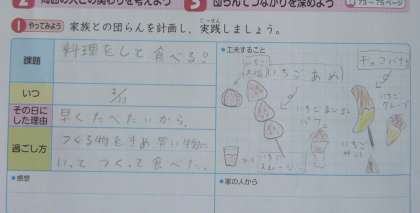 2 周囲の人との関わりを考えよう
3 団らんでつながりを深めよう
73~75ページ
1 やってみよう 家族との団らんを計画し、実践しましょう。
じっせん
課題
料理をして食べる。
いつ
2/11
その日にした理由
早くたべたいから。
過ごし方
つくる物をきめ買い物に
いって つくって食べた。
●工夫すること
いちご
大福
いちごあめ
チョコバナナ
いちご
クレープ
いちご
パフェ
いちご
●感想
●家の人から